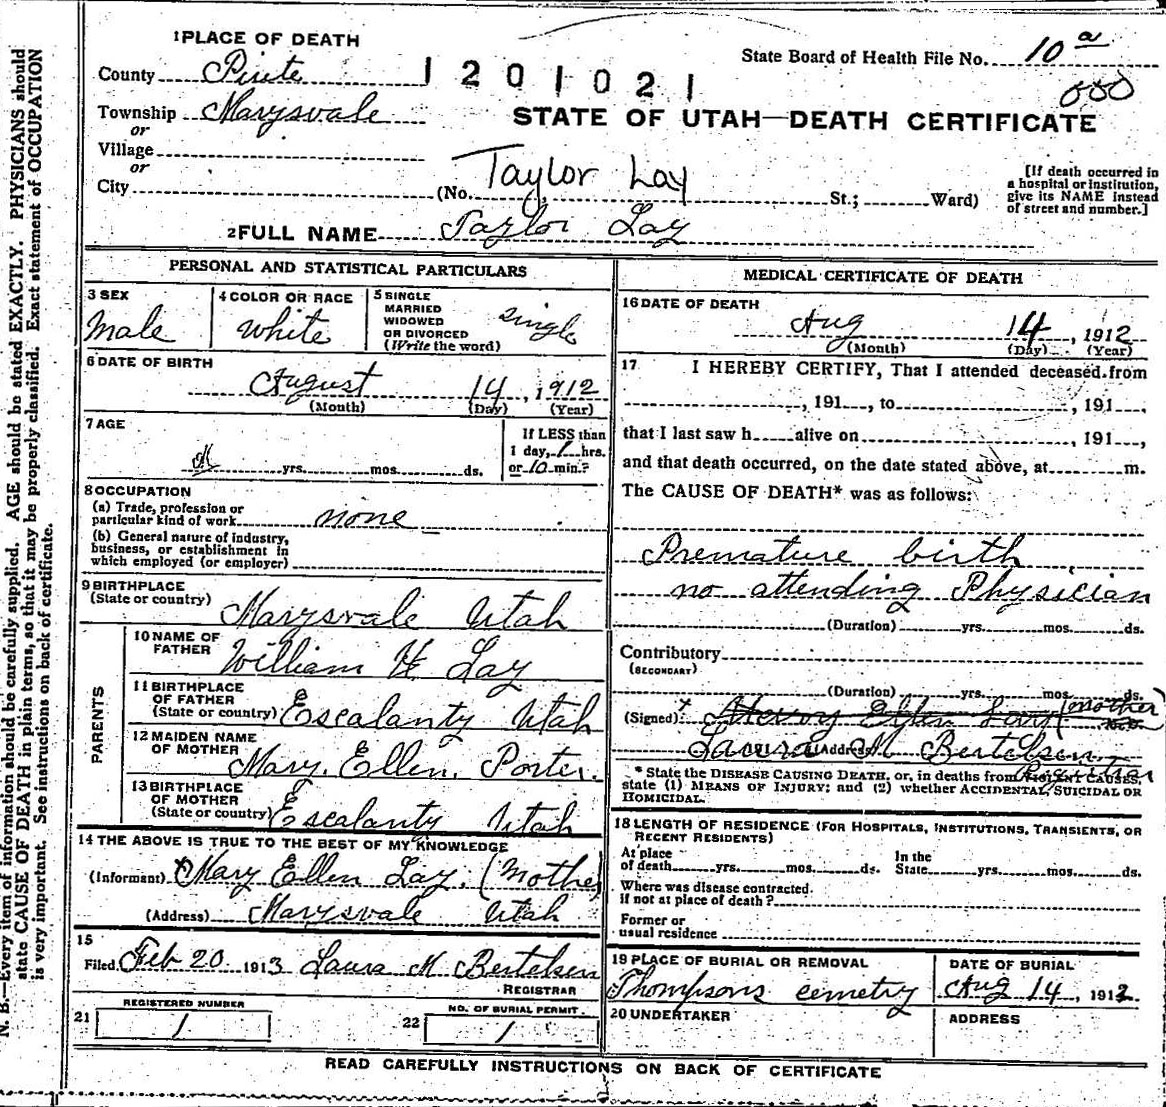 1 PLACE OF DEATH
State Board of Health File No. 10 a
County Piute
1201021
000
Township Marysvale
STATE OF UTAH—DEATH CERTIFICATE
or
Village
or
City
(No. Taylor Lay St.; Ward)
[If death occurred in
a hospital or institution,
give its NAME instead
of street and number.]
2 FULL NAME Taylor Lay
PERSONAL AND STATISTICAL PARTICULARS
3 SEX
Male
4 COLOR OR RACE
White
5 SINGLE
MARRIED
WIDOWED
OR DIVORCED
(Write the word)
Single
6 DATE OF BIRTH
August 14, 1912
(Month) (Day) (Year)
7 AGE
yrs. mos. ds.
If LESS than
1 day, 1 hrs.
or 10 min.?
8 OCCUPATION
(a) Trade, profession or
particular kind of work none
(b) General nature of industry,
business, or establishment in
which employed (or employer)
9 BIRTHPLACE
(State or country)
Marysvale Utah
PARENTS
10 NAME OF
FATHER
William H Lay
11 BIRTHPLACE
OF FATHER
(State or country) Escalanty Utah
12 MAIDEN NAME
OF MOTHER
Mary. Ellen. Porter.
13 BIRTHPLACE
OF MOTHER
(State or country) Escalanty Utah
14 THE ABOVE IS TRUE TO THE BEST OF MY KNOWLEDGE
(Informant) x Mary Ellen Lay. (Mother)
(Address) Marysvale Utah
15
Filed Feb 20 1913 Laura M Bertelsen
REGISTRAR
21 REGISTERED NUMBER
1
22 NO. OF BURIAL PERMIT
1
MEDICAL CERTIFICATE OF DEATH
16 DATE OF DEATH
Aug 14, 1912
(Month) (Day) (Year)
17 I HEREBY CERTIFY, That I attended deceased from
, 191 , to , 191 ,
that I last saw h alive on , 191 ,
and that death occurred, on the date stated above, at m.
The CAUSE OF DEATH* was as follows:
Premature birth
no attending Physician
(Duration) yrs. mos. ds.
Contributory
(SECONDARY)
(Duration) yrs. mos. ds.
(Signed) x Ellen Lay (mother)
Laura M Bertelsen.
(Address)
* State the DISEASE CAUSING DEATH, or, in deaths from VIOLENT CAUSES,
state (1) MEANS OF INJURY; and (2) whether ACCIDENTAL, SUICIDAL OR
HOMICIDAL.
18 LENGTH OF RESIDENCE (FOR HOSPITALS, INSTITUTIONS, TRANSIENTS, OR
RECENT RESIDENTS)
At place
of death yrs. mos. ds.
In the
State yrs. mos. ds.
Where was disease contracted.
if not at place of death?
Former or
usual residence
19 PLACE OF BURIAL OR REMOVAL
Thompsons cemetry
DATE OF BURIAL
Aug 14, 1912
20 UNDERTAKER
ADDRESS
READ CAREFULLY INSTRUCTIONS ON BACK OF CERTIFICATE
N. B.—Every item of information should be carefully supplied. AGE should be stated EXACTLY. PHYSICIANS should
state CAUSE OF DEATH in plain terms, so that it may be properly classified. Exact statement of OCCUPATION
is very important. See instructions on back of certificate.